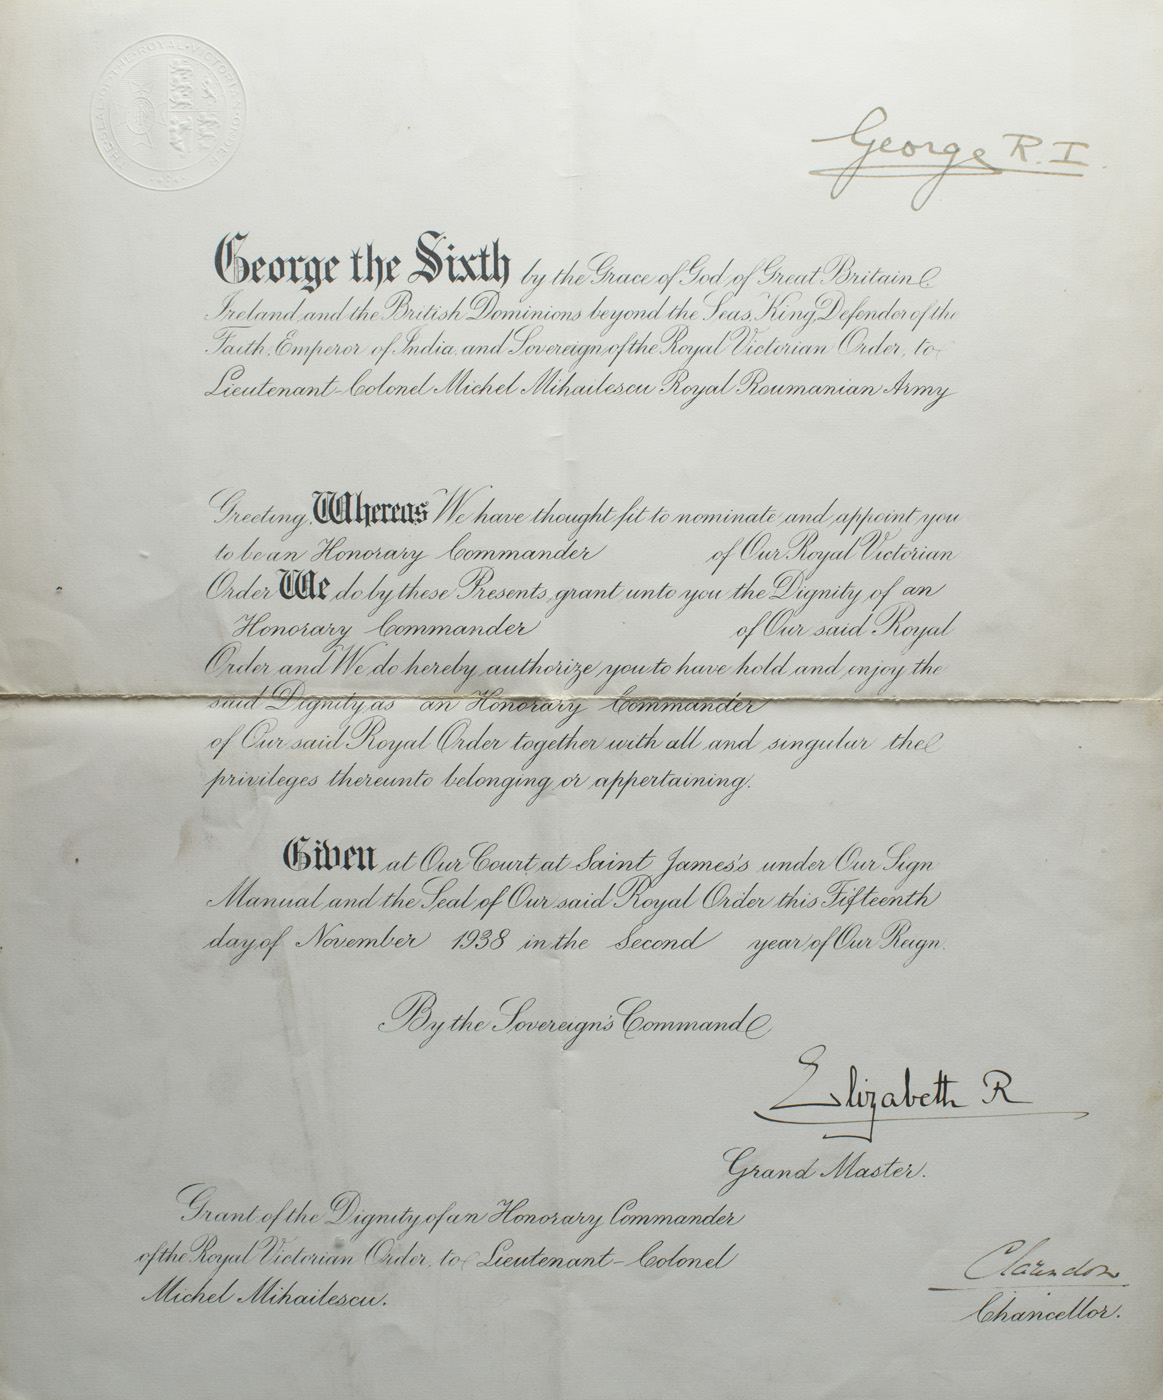 THE SEAL OF THE ROYAL VICTORIAN ORDER
George R.I.
George the Sixth by the Grace of God, of Great Britain,
Ireland and the British Dominions beyond the Seas, King, Defender of the
Faith, Emperor of India, and Sovereign of the Royal Victorian Order, to
Lieutenant-Colonel Michel Mihailescu Royal Roumanian Army
Greeting, Whereas We have thought fit to nominate and appoint you
to be an Honorary Commander of Our Royal Victorian
Order We do by these Presents, grant unto you the Dignity of an
Honorary Commander of Our said Royal
Order and We do hereby authorize you to have hold and enjoy the
said Dignity as an Honorary Commander
of Our said Royal Order together with all and singular the
privileges thereunto belonging or appertaining.
Given at Our Court at Saint James's under Our Sign
Manual and the Seal of Our said Royal Order this Fifteenth
day of November 1938 in the Second year of Our Reign.
By the Sovereign's Command
Elizabeth R
Grand Master.
Grant of the Dignity of an Honorary Commander
of the Royal Victorian Order, to Lieutenant-Colonel
Michel Mihailescu.
Clarendon
Chancellor.